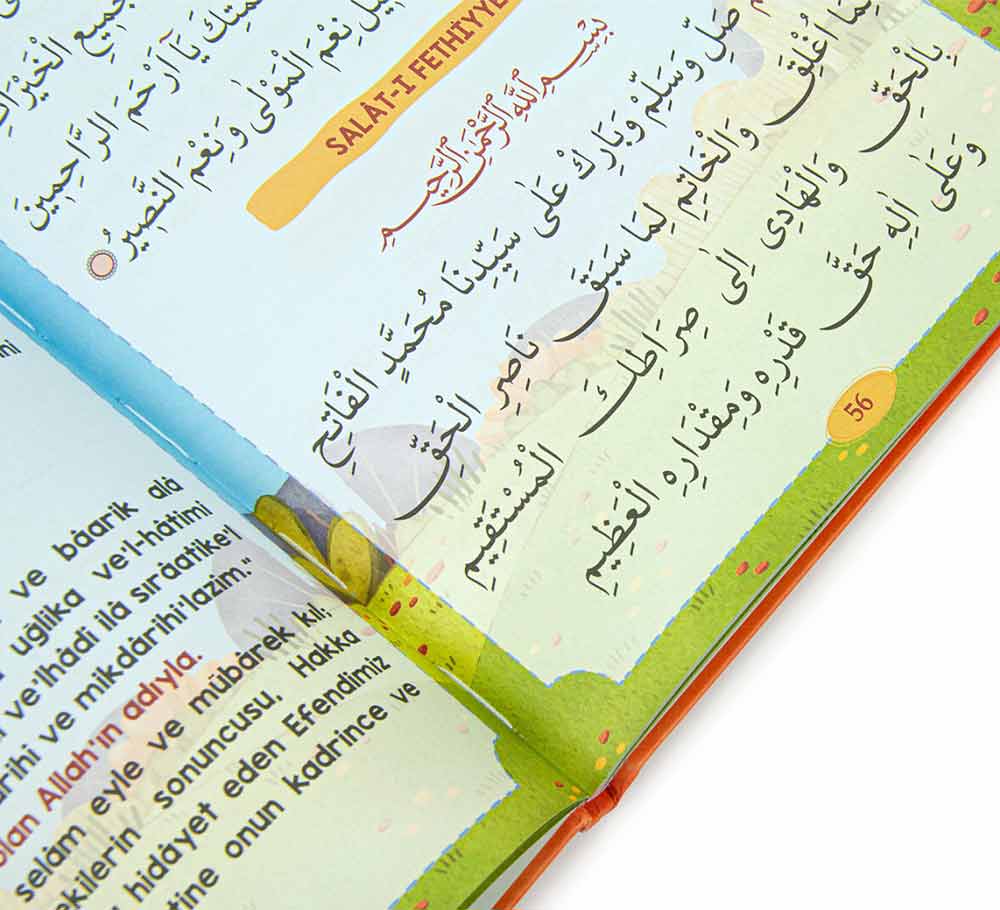 جَمِيعِ الْخَيْرَاتِ
يَآ اَرْحَمَ الرَّاحِمِينَ
نِعْمَ الْمَوْلٰى وَنِعْمَ النَّصِيرُ
SALÂT-I FETHİYYE
بِسْمِ اللّٰهِ الرَّحْمٰنِ الرَّحِيمِ
صَلِّ وَسَلِّمْ وَبَارِكْ عَلٰى سَيِّدِنَا مُحَمَّدٍ الْفَاتِحِ
لِمَا اُغْلِقَ وَالْخَاتِمِ لِمَا سَبَقَ نَاصِرِ الْحَقِّ
بِالْحَقِّ وَالْهَادِى اِلٰى صِرَاطِكَ الْمُسْتَقِيمِ
وَعَلٰى اٰلِهِ حَقَّ قَدْرِهِ وَمِقْدَارِهِ الْعَظِيمِ
56
ve bâarik alâ
uğlika ve'l-hâtimi
ve'lhâdi ilâ sırâatike'l
ve mikdârihi'lazîm."
Allah'ın adıyla.
selâm eyle ve mübârek kıl;
sonuncusu, Hakka
hidâyet eden Efendimiz
onun kadrince ve